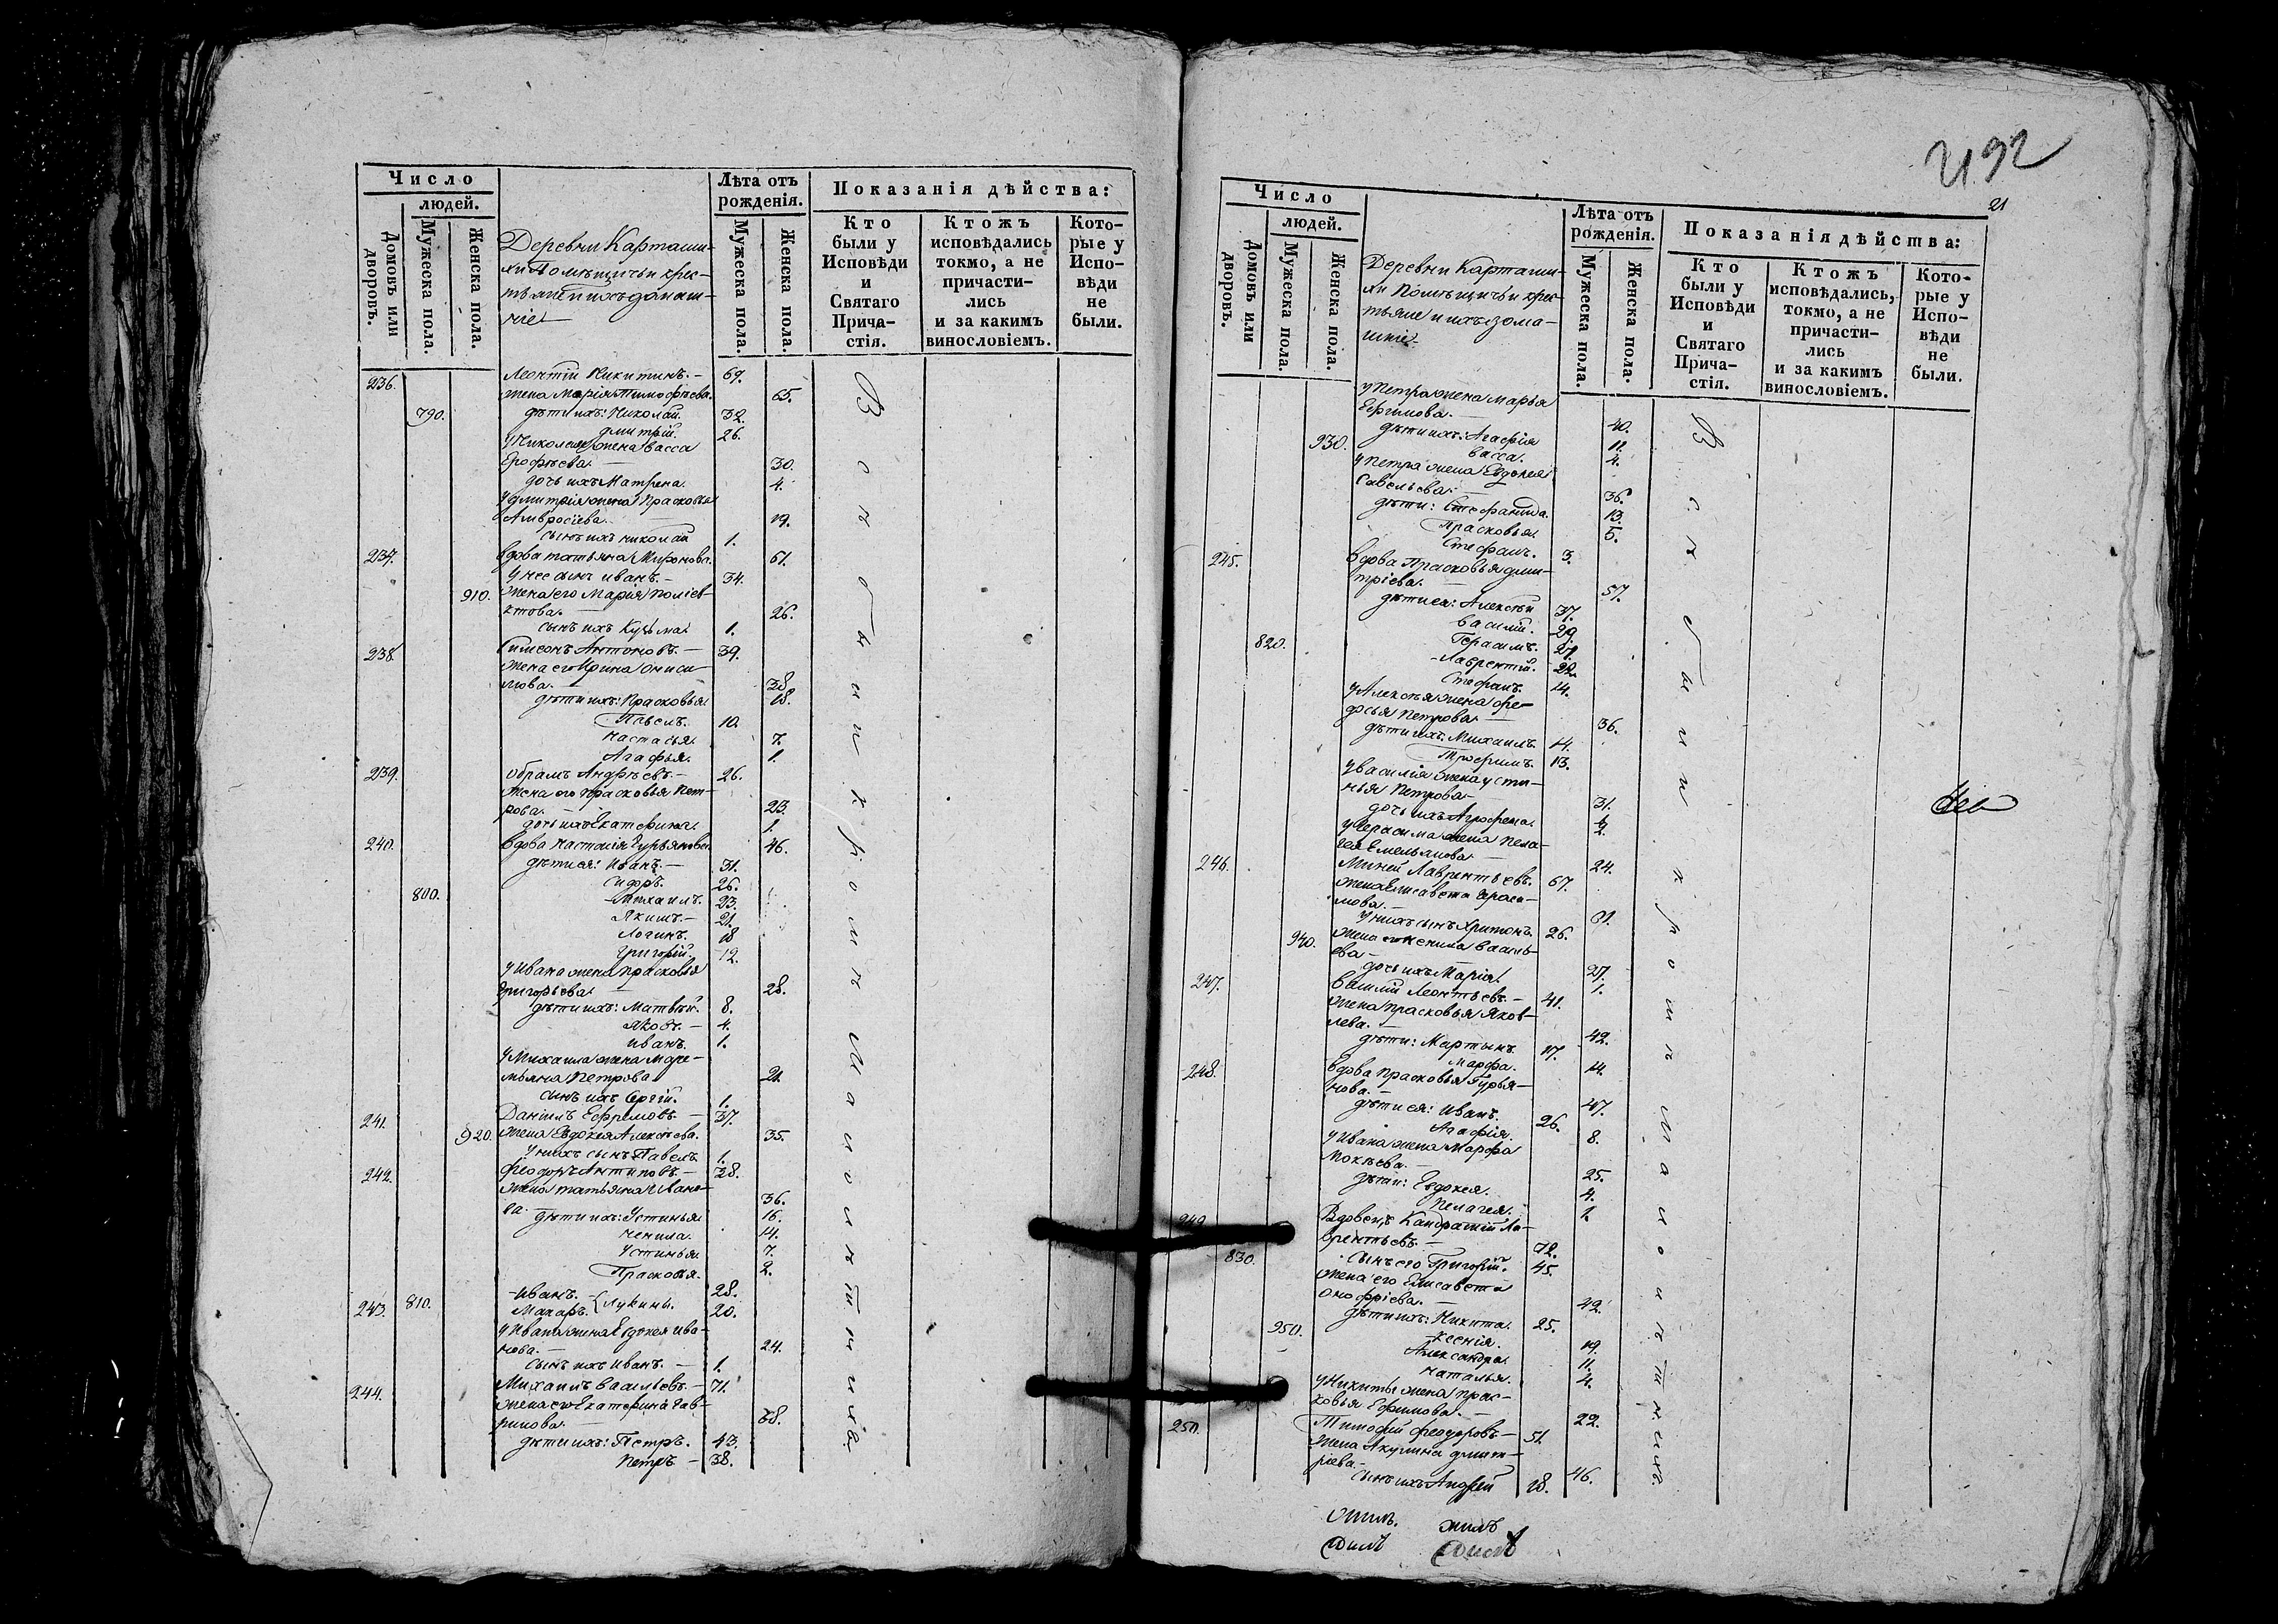 Число
людей.
Домовъ или дворовъ.
Мужеска пола.
Женска пола.
Деревни Карташи-
хи Помѣщичьи крес-
тьяне и ихъ домаш-
ніе
Лѣта отъ рожденія.
Мужеска пола.
Женска пола.
Показанія дѣйства:
Кто были у Исповѣди и Святаго Прича-стія.
Ктожъ исповѣдались токмо, а не причасти-лись и за какимъ винословіемъ.
Кото-рые у Испо-вѣди не были.
236. Леонтій Никитинъ. — 69.
жена Марія Тимофѣева. 65.
790. дѣти ихъ: Николай. 32.
Дмитрій. 26.
у Николая жена Васса
Ерофѣева. — 30.
дочь ихъ Матрена. 4.
у Дмитрія жена Прасковья
Амвросіева. 19.
сынъ ихъ Николай 1.
237. Вдова Татьяна Миронова. 61.
у нее сынъ Иванъ. — 34.
910. жена его Марія Поліев-
ктова. — 26.
сынъ ихъ Кузьма 1.
238. Симеонъ Антоновъ. — 39.
жена его Ирина Ониси-
мова. — 38
дѣти ихъ: Прасковья. 18.
Павелъ. 10.
Настасья. 7.
Агафья. 1.
239. Обрамъ Андрѣевъ. — 26.
жена его Прасковья Пет-
рова. — 23.
дочь ихъ Екатерина. 1.
240. Вдова Настасія Гурьянова. 46.
дѣти ея: Иванъ. — 31.
Сидоръ. 26.
800. Михаилъ. 23.
Якимъ. — 21.
Логинъ. 18
Григорій. 12.
у Ивана жена Прасковья
Григорьева. — 28.
дѣти ихъ: Матвѣй. 8.
Яковъ. — 4.
Иванъ. 1.
у Михаила жена Маре-
мьяна Петрова 21.
сынъ ихъ Сергій. 1.
241. Даніилъ Ефремовъ. — 37.
920. жена Евдокея Алексѣева. 35.
у нихъ сынъ Павелъ 1.
242. Феодоръ Антиповъ. — 38.
жена Татьяна Ивано-
ва. — 36.
дѣти ихъ: Устинья. 16.
Ненила. 14.
Устинья. 7.
Прасковья. 2.
Иванъ. — 28.
243. 810. Макаръ. { Лукины. 20.
у Ивана жена Евдокея Ива-
нова. — 24.
сынъ ихъ Иванъ. — 1.
244. Михаилъ Васильевъ. — 71.
жена его Екатерина Гав-
рилова. — 68.
дѣти ихъ: Петръ. 43.
Петръ — 38.
Всѣ были и кромѣ малолѣтнихъ
2192
21
Число
людей.
Домовъ или дворовъ.
Мужеска пола.
Женска пола.
Деревни Карташи-
хи Помѣщичьи крес-
тьяне и ихъ дома-
шніе
Лѣта отъ рожденія.
Мужеска пола.
Женска пола.
Показанія дѣйства:
Кто были у Исповѣди и Святаго Прича-стія.
Ктожъ исповѣдались, токмо, а не причасти-лись и за какимъ винословіемъ.
Кото-рые у Испо-вѣди не были.
у Петра жена Марья
Ефимова. — 40.
дѣти ихъ: Агафія 11.
930. Васса. 4.
у Петра жена Евдокея
Савельева. — 36.
дѣти: Стефанида. 13.
Прасковья. 5.
Стефанъ. 3.
245. Вдова Прасковья Дми-
тріева. — 57.
дѣти ея: Алексѣй 37.
Василій. 29.
820. Герасимъ. 27.
Лаврентій. 22.
Стефанъ. 14.
у Алексѣя жена Фео-
досья Петрова — 36.
дѣти ихъ: Михаилъ. 14.
Трофимъ. 13.
у Василія жена Усти-
нья Петрова — 31.
дочь ихъ Агрофена.
у Герасима жена Пела-
гея Емельянова — 24.
246. Миней Лаврентьевъ. 67.
жена Елисавета Гераси-
мова. — 61.
у нихъ сынъ Харитонъ. 26.
940. жена его Ненила Василь-
ева — 27.
дочь ихъ Марія 1.
247. Василій Леонтьевъ. — 41.
жена Прасковья Яков-
лева. — 42.
дѣти: Мартынъ. 17.
Марфа. 14.
248. Вдова Прасковья Гурья-
нова. — 47.
дѣти ея: Иванъ. 26.
Агафія. 8.
у Ивана жена Марфа
Мокѣева. — 25.
дѣти: Евдокея. 4.
Пелагея. 1.
249. Вдовецъ Кандратій Ла-
врентьевъ. — 72.
830. сынъ его Григорій. 45.
жена его Елисавета
Онофріева. — 42.
дѣти ихъ: Никита. 25.
950. Ксенія. 19.
Александра. 11.
Наталья. 4.
у Никиты жена Прас-
ковья Ефимова. — 22.
250. Тимофей Феодоровъ — 51.
жена Акулина Дмит-
ріева. — 46.
сынъ ихъ Андрей 18.
Всѣ были и кромѣ малолѣтнихъ.